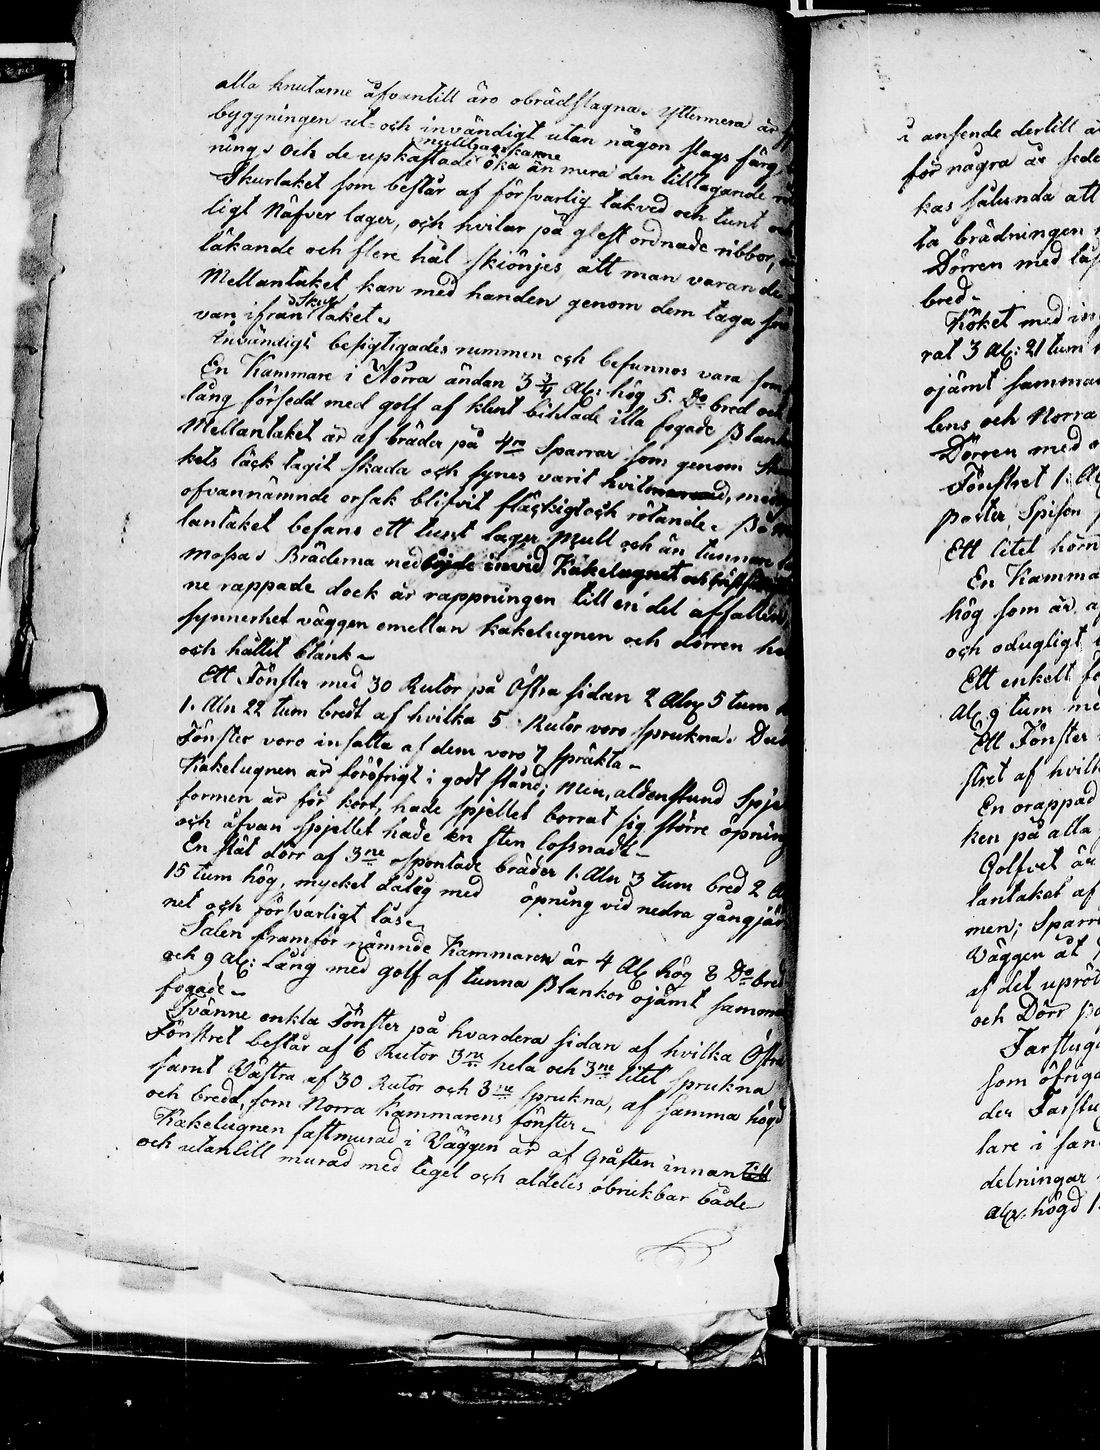 alla knutarne åfvantill äro obrädslagna. Yttermera är
byggningen ut- och invändigt utan någon slags färg
ning. Och de upkastade mulltgarskarne öka än mera den tilltagande
Skurtaket som består af försvarlig takved och tunt
ligt Näfver lager, och hvilar på glest ordnade ribbor,
läkande och flere hål skiönjes, att man varande
Mellantaket kan med handen genom dem taga
van ifrån Skur taket.
Invändigt besigtigades rummen och befunnos vara som
En Kammare i Norra ändan 3 3/4 Al: hög 5. Do bred och
lång försedd med golf af klent bihlade illa fogade Plank
Mellantaket är af bräder på 4ra Sparrar som genom
kets läck tagit skada och synes varit hvitmenad, men
ofvannämnde orsak blifvit fläckigt och rötande. På
lantaket befans ett tunt lager Mull och än tunnare
mossa. Bräderna nedböjde invid Kakelugnet och
ne rappade dock är rappningen till en del affallen,
synnerhet väggen emellan kakelugnen och dörren
och hållit blank.
Ett Fönster med 30 Rutor på Östra sidan 2 Alnr 5 tum
1. Aln 22 tum bredt af hvilka 5. Rutor voro sprukna.
Fönster voro insatta af dem voro 7 spräkta.
Kakelugnen är föröfrigt i godt stånd; Men, aldenstund Spje
formen är för kort, hade spjellet borrat sig större öpning
och åfvan spjellet hade en sten lossnadt.
En slät dörr af 3ne ospontade bräder 1. Aln 3 tum bred 2
15 tum hög, mycket dålig med öpning vid nedra gångjär
net och försvarligt lås.
Salen framför nämnde Kammaren är 4 Al hög 8 Do bred
och 9 Al: Lång med golf af tunna Plankor ojämt samman
fogade.
Tvänne enkla Fönster på hvardera sidan af hvilka Östra
Fönstret består af 6 Rutor 3ne hela och 3ne litet sprukna
samt Västra af 30 Rutor och 3ne sprukna, af samma högd
och bredd, som Norra Kammarens fönster.
Kakelugnen fastmurad i Väggen är af Gråsten innan till
och utantill murad med tegel och aldeles obrukbar både
i anseende dertill
för några år sede
kas sålunda att
ta brädningen
Dörren med lås
bred.
Köket med in
rat 3 Al: 21 tum
ojämt samman
lens och Norra
Dörren med
Fönstret 1. Al
poster, Spisen
Ett litet hörn
En Kamma
hög som är
och odugligt
Ett enkelt fö
Al 9 tum me
Ett Fönster
stret af hvilk
En orappad
ken på alla
Golfvet är
lantaket af
men; Sparr
Väggen åt
af det upröt
och Dörr på
Farstug
som öfriga
der Farstu
lare i sand
delningar
Alr. högd 1.